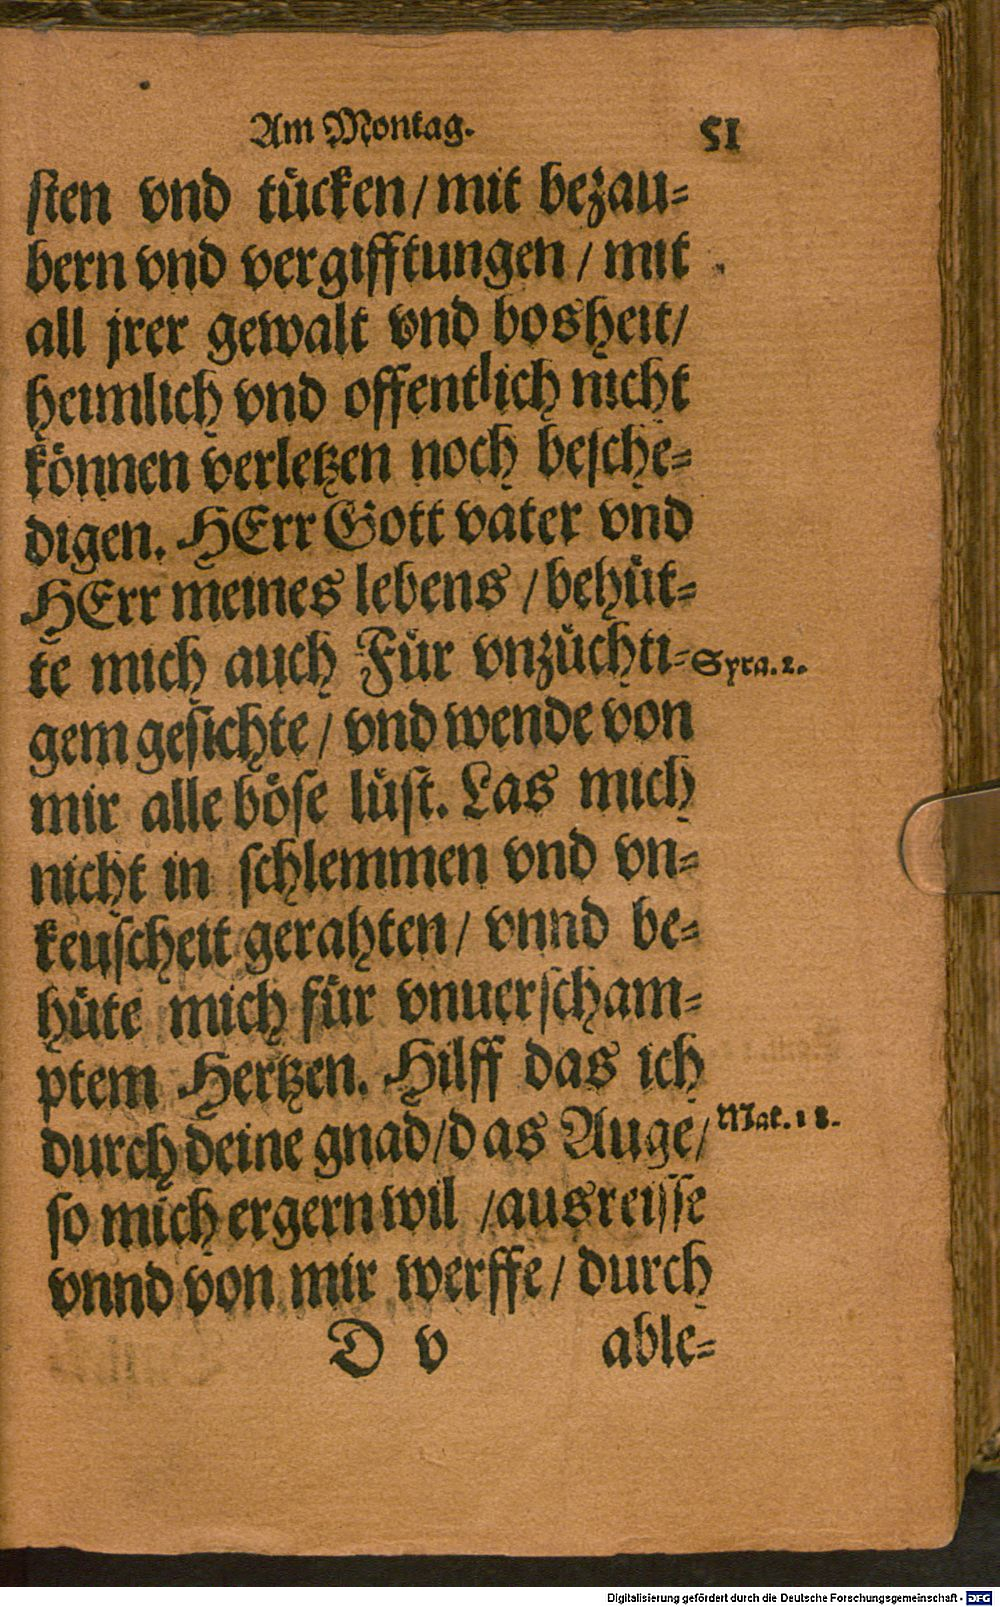 Am Montag. 51
ſten vnd tücken/ mit bezau-
bern vnd vergifftungen / mit
all jrer gewalt vnd bosheit/
heimlich vnd offentlich nicht
können verletzen noch beſche-
digen. HErr Gott vater vnd
HErr meines lebens / behüt-
te mich auch Für vnzüchti- Syra. 2.
gem geſichte / vnd wende von
mir alle böſe lüſt. Las mich
nicht in ſchlemmen vnd vn-
keuſcheit gerahten / vnnd be-
hüte mich für vnuerſcham-
ptem Hertzen. Hilff das ich
durch deine gnad/ das Auge/ Mat. 18.
ſo mich ergern wil / ausreiſſe
vnnd von mir werffe / durch
D v able-
Digitalisierung gefördert durch die Deutsche Forschungsgemeinschaft - DFG